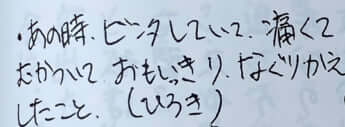 ・あの時、ビンタしていて、痛くて
むかついて おもいっきり、なぐりかえ
したこと。(ひろき)